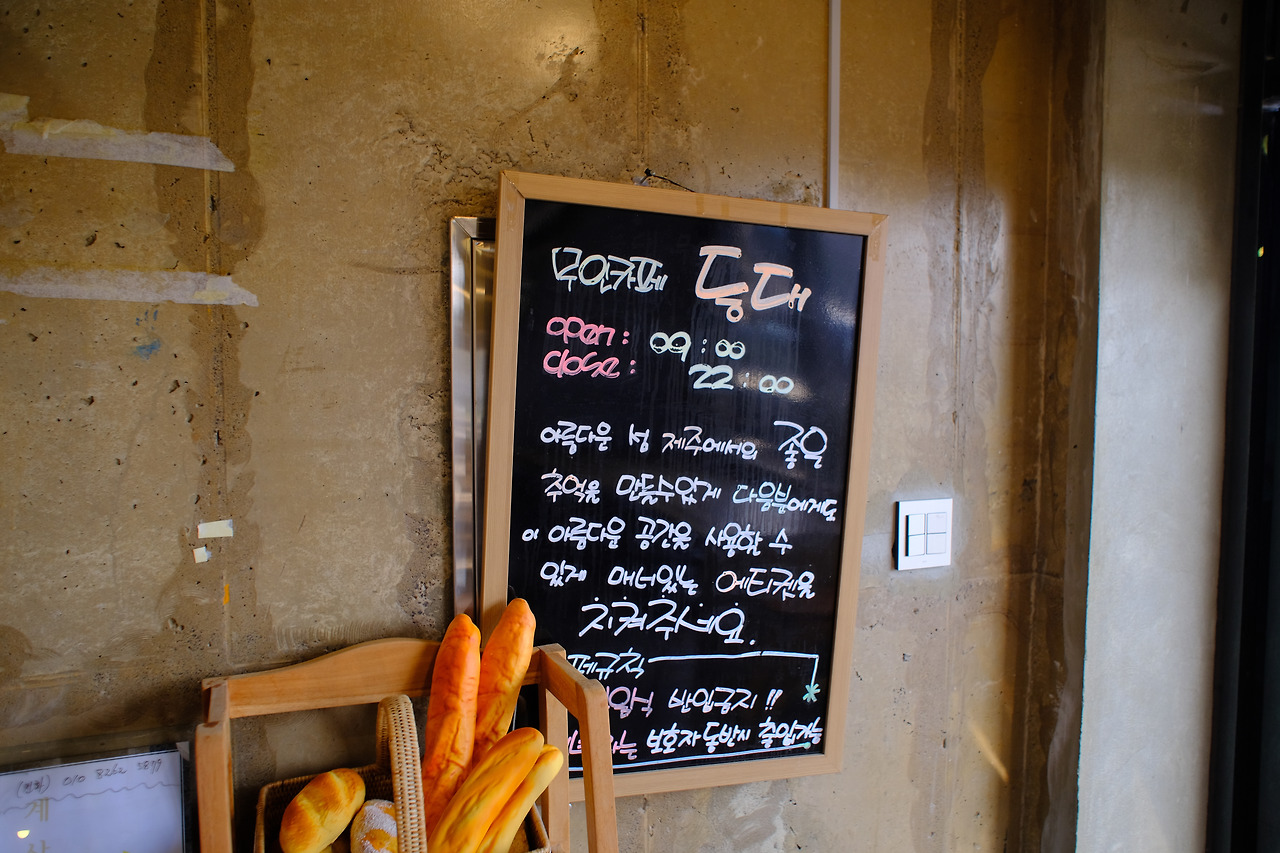 무인카페 등대
open : 09 : 00
close : 22 : 00
아름다운 섬 제주에서의 좋은
추억을 만들수있게 다음분에게도
이 아름다운 공간을 사용할 수
있게 매너있는 에티켓을
지켜주세요.
페규칙
반입금지 !!
는 보호자동반시 출입가능
010 8262
계산